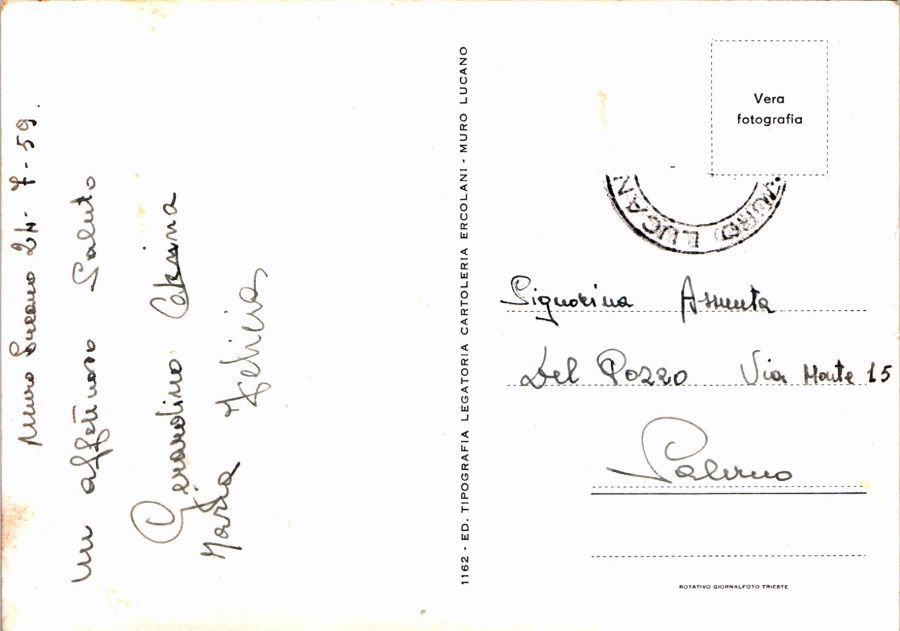 Muro Lucano 24-7-59.
Un affettuoso saluto
Gerardino Caterina
Maria Felicia
1162 - ED. TIPOGRAFIA LEGATORIA CARTOLERIA ERCOLANI - MURO LUCANO
Vera
fotografia
MURO LUCAN
Signorina Assunta
Del Pozzo Via Monte 15
Salerno
ROTATIVO GIORNALFOTO TRIESTE